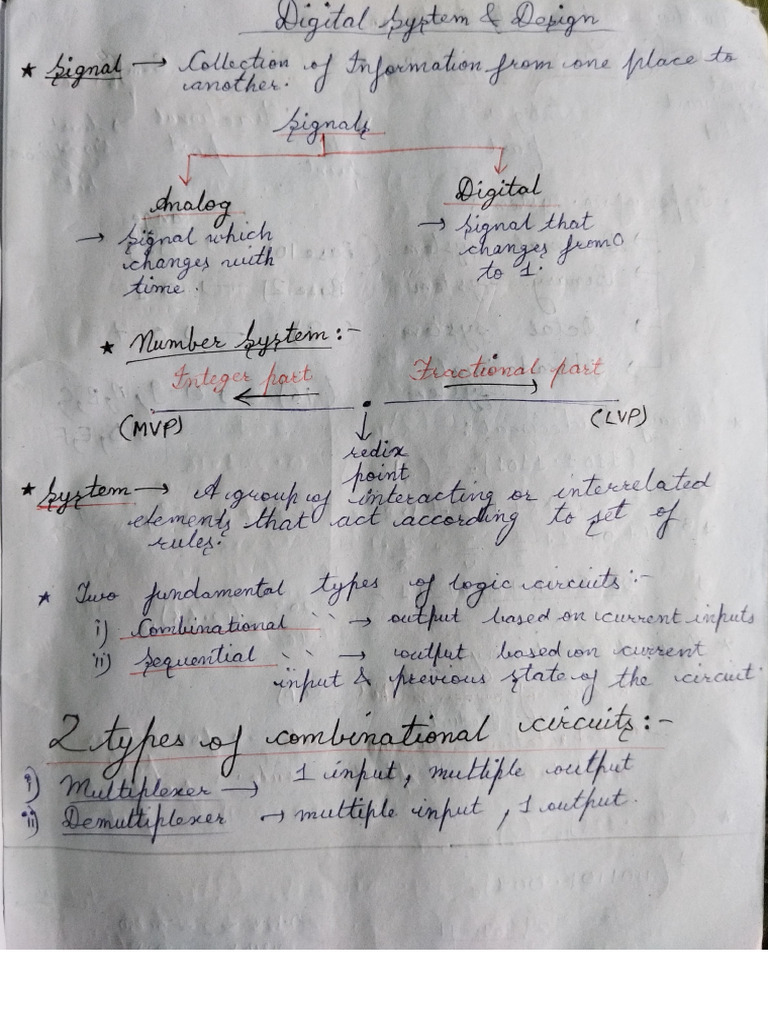 Digital System & Design
★ Signal → Collection of Information from one place to
another.
Signals
Analog
Digital
→ Signal which
changes with
time.
→ Signal that
changes from 0
to 1.
★ Number System :-
Integer part
Fractional part
(MVP)
(LVP)
redix
point
★ System → A group of interacting or interrelated
elements that act according to set of
rules.
★ Two fundamental types of logic circuits :-
i) Combinational `` → output based on current inputs
ii) Sequential `` → output based on current
input & previous state of the circuit.
2 types of combinational circuits :-
i) Multiplexer → 1 input, multiple output
ii) Demultiplexer → multiple input, 1 output.